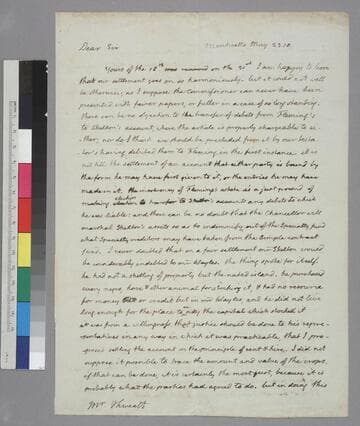 Dear Sir Monticello May 25. 10.
Yours of the 18th was received on the 21st I am happy to learn
that our settlement goes on so harmoniously. but it could not well
be otherwise, as I suppose the Commissioner can never have been
presented with fewer papers, or fuller in a case of so long standing.
there can be no objection to the transfer of debets from Fleming's
to Skelton's account, where the article is properly chargeable to ei-
ther, nor do I think we should be precluded from it by our testa-
tor's having debited them to Fleming in the first instance. it is
not till the settlement of an account that either party is bound by
the form he may have first given to it, or the entries he may have
made in it. the insolvency of Fleming's estate is a just ground of
making election to transfer to Skelton's account any debts to which
he was liable: and there can be no doubt that the Chancellor will
marshal Skelton's assets so as to indemnify out of the Specialty fund
what Specialty creditors may have taken from the simple contract
fund. I never doubted that on a fair settlement Skelton would
be considerably indebted to mr Wayles. the thing spoke for itself.
he had not a shilling of property but the naked island. he purchased
every negro, horse & other animal for stocking it, & had no resource
for money or credit but in mr Wayles and he did not live
long enough for the place to pay the capital which stocked it
it was from a willingness that justice should be done to his repre-
sentatives in any way in which it was practicable, that I pro-
posed settling the account on the principle of rent & hire. I did not
suppose it possible to trace the amount and value of the crops.
if that can be done, it is certainly the most just, because it is
probably what the parties had agreed to do. but in doing this
Mr. Thweatt